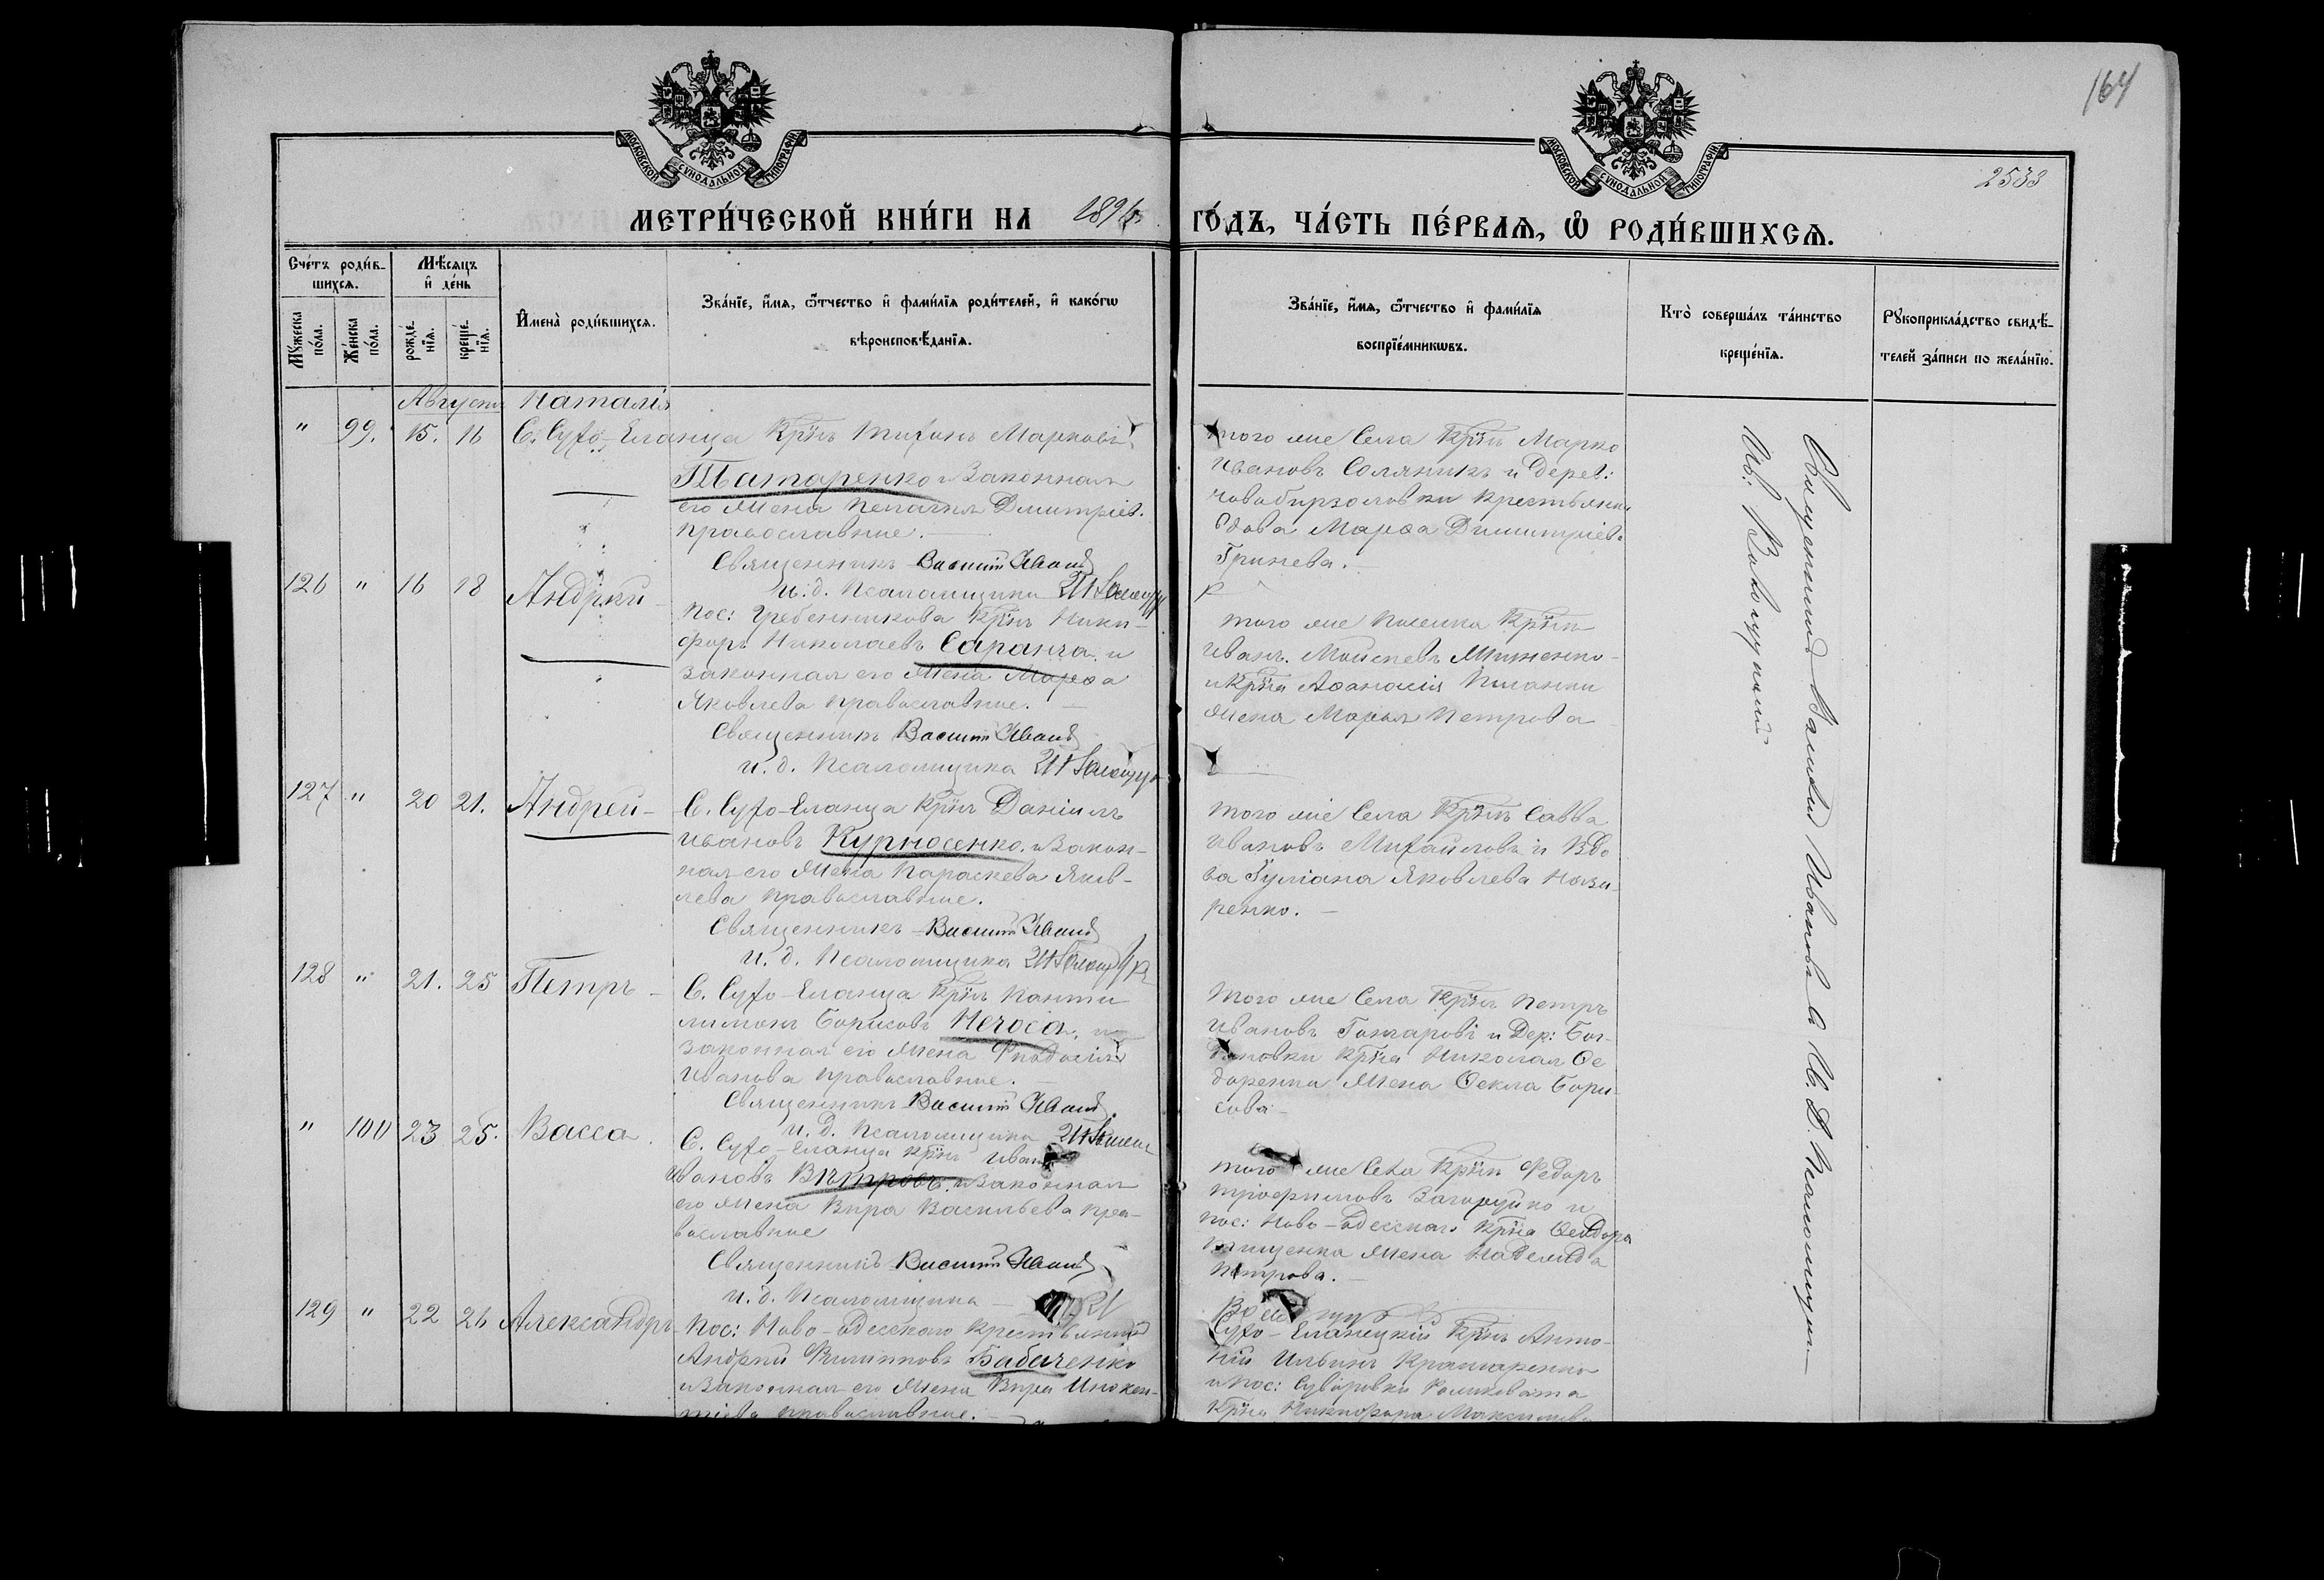 164
МОСКОВСКОЙ СѴНОДАЛЬНОЙ ТИПОГРАФІИ
МОСКОВСКОЙ СѴНОДАЛЬНОЙ ТИПОГРАФІИ
2533
МЕТРИ́ЧЕСКОЙ КНИ́ГИ НА
ГО́ДЪ, ЧА́СТЬ ПЕ́РВАѦ, Ѡ҆ РОДИ́ВШИХСѦ.
Сче́тъ роди́в-
шихсѧ.
Мѣ́сѧцъ
и҆ де́нь
Мꙋ́жеска
по́ла.
Же́нска
по́ла.
рожде́-
нїѧ.
креще́-
нїѧ.
И҆мена̀ роди́вшихсѧ.
Зва́нїе, и҆́мѧ, ѻ҆́тчество и҆ фами́лїѧ роди́телей, и҆ како́гѡ
вѣроисповѣ́данїѧ.
Зва́нїе, и҆́мѧ, ѻ҆́тчество и҆ фами́лїѧ
воспрїе́мникѡвъ.
Кто̀ соверша́лъ та́инство
креще́нїѧ.
Рꙋкоприкла́дство свидѣ́-
телей за́писи по жела́нїю.
Августъ Наталія
" 99. 15. 16 С. Сухо-Еланца Крнъ Тихонъ Марковъ
Татаренко и Законная
его Жена Пелагия Дмитріев.
православные.
Священникъ Василий Иванов
и. д. Псаломщика
того же Села Крнъ Марко
Ивановъ Соляникъ и Дерев:
вдова Марѳа Димитріев.
Гринева.
126 " 16 18 Андрей
пос: Гребенникова Крнъ Ники-
форъ Николаевъ Саранча и
законная его Жена Марѳа
Яковлева православные.
Священникъ Василий Иванов
и. д. Псаломщика
того же поселка Крнъ
Иванъ
и Крна Аѳанасія
Жена Марья Петрова
127 " 20 21. Андрей
С. Сухо-Еланца Крнъ Даніилъ
Ивановъ Курносенко и Закон-
ная его Жена Параскева Яков-
лева православные.
Священникъ Василий Иванов
и. д. Псаломщика
того же Села Крнъ Савва
Ивановъ Михайловъ и Вдо
ва Іуліана Яковлева Наза-
ренко.
128 " 21. 25 Петръ
С. Сухо-Еланца Крнъ Панте
лимонъ Борисовъ Нечоса и
законная его Жена Феодосія
Иванова православные.
Священникъ Василий Иванов
и. д. Псаломщика
того же Села Крнъ Петръ
Ивановъ и Дер: Бог-
дановки Крна Николая Ѳе
доренка Жена Ѳекла Бори-
сова
" 100 23 25. Васса
С. Сухо-Еланца Крнъ Иванъ
Ивановъ Вѣтровъ и Законная
его Жена Вѣра Васильева пра-
вославные
Священникъ Василий Иванов
и. д. Псаломщика
того же Села Крнъ Федоръ
Трофимовъ Загоруйко и
пос: Ново-одесскаго Крна Ѳеодора
Тищенка Жена
Петрова.
129 " 22 26 Александръ
Пос: Ново-одесскаго Крестьянинъ
Андрей Филиповъ Бабаченко
и Законная его Жена Вѣра Инокен-
тіева православные.
Сухо-Еланецкій Крнъ Анто-
ній Ильинъ Крамаренко
и пос: Суворовки
Крна Никифора
Священникъ Василий Ивановъ съ И. Д. Псаломщика